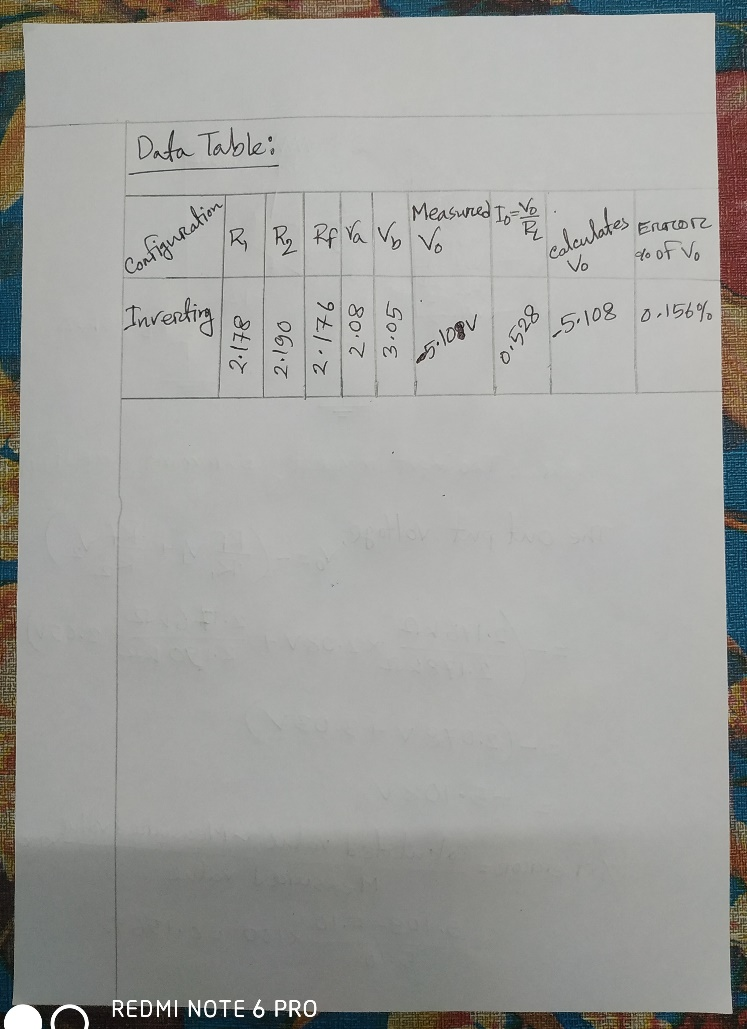 Data Table:
Configuration R1 R2 Rf Va Vb Measured Vo Io=Vo/RL calculates Vo Error % of Vo
Inverting 2.178 2.190 2.176 2.08 3.05 0.528 -5.108 0.156%
REDMI NOTE 6 PRO